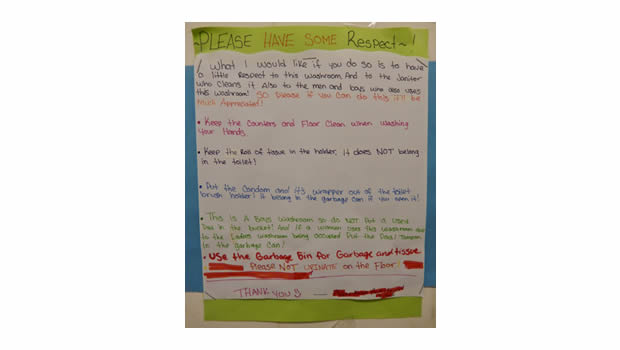 ~PLEASE HAVE SOME Respect~!
What I would like if you do so is to have
a little Respect to this washroom. And to the Janiter
who Cleans it. Also to the men and boys who also uses
this washroom! SO Please if you can do this it'll be
Much Appreciated!
• Keep the Counters and Floor Clean when washing
your Hands.
• Keep the Roll of tissue in the holder, it does NOT belong
in the toilet!
• Put the Condom and it's wrapper out of the toilet
brush holder! It belong in the garbage can if you open it!
• This is A Boys washroom so do NOT Put a used
Pad in the bucket! And if a women uses this washroom due
to the Ladies washroom being occupied Put the Pad/ tampon
in the garbage can!
• Use the Garbage Bin for Garbage and tissue
Please NOT URINATE on the Floor.
THANK YOU!! —